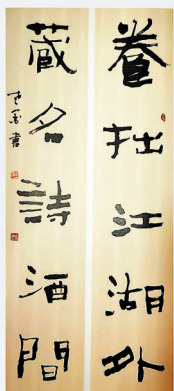 養拙江湖外
藏名詩酒間